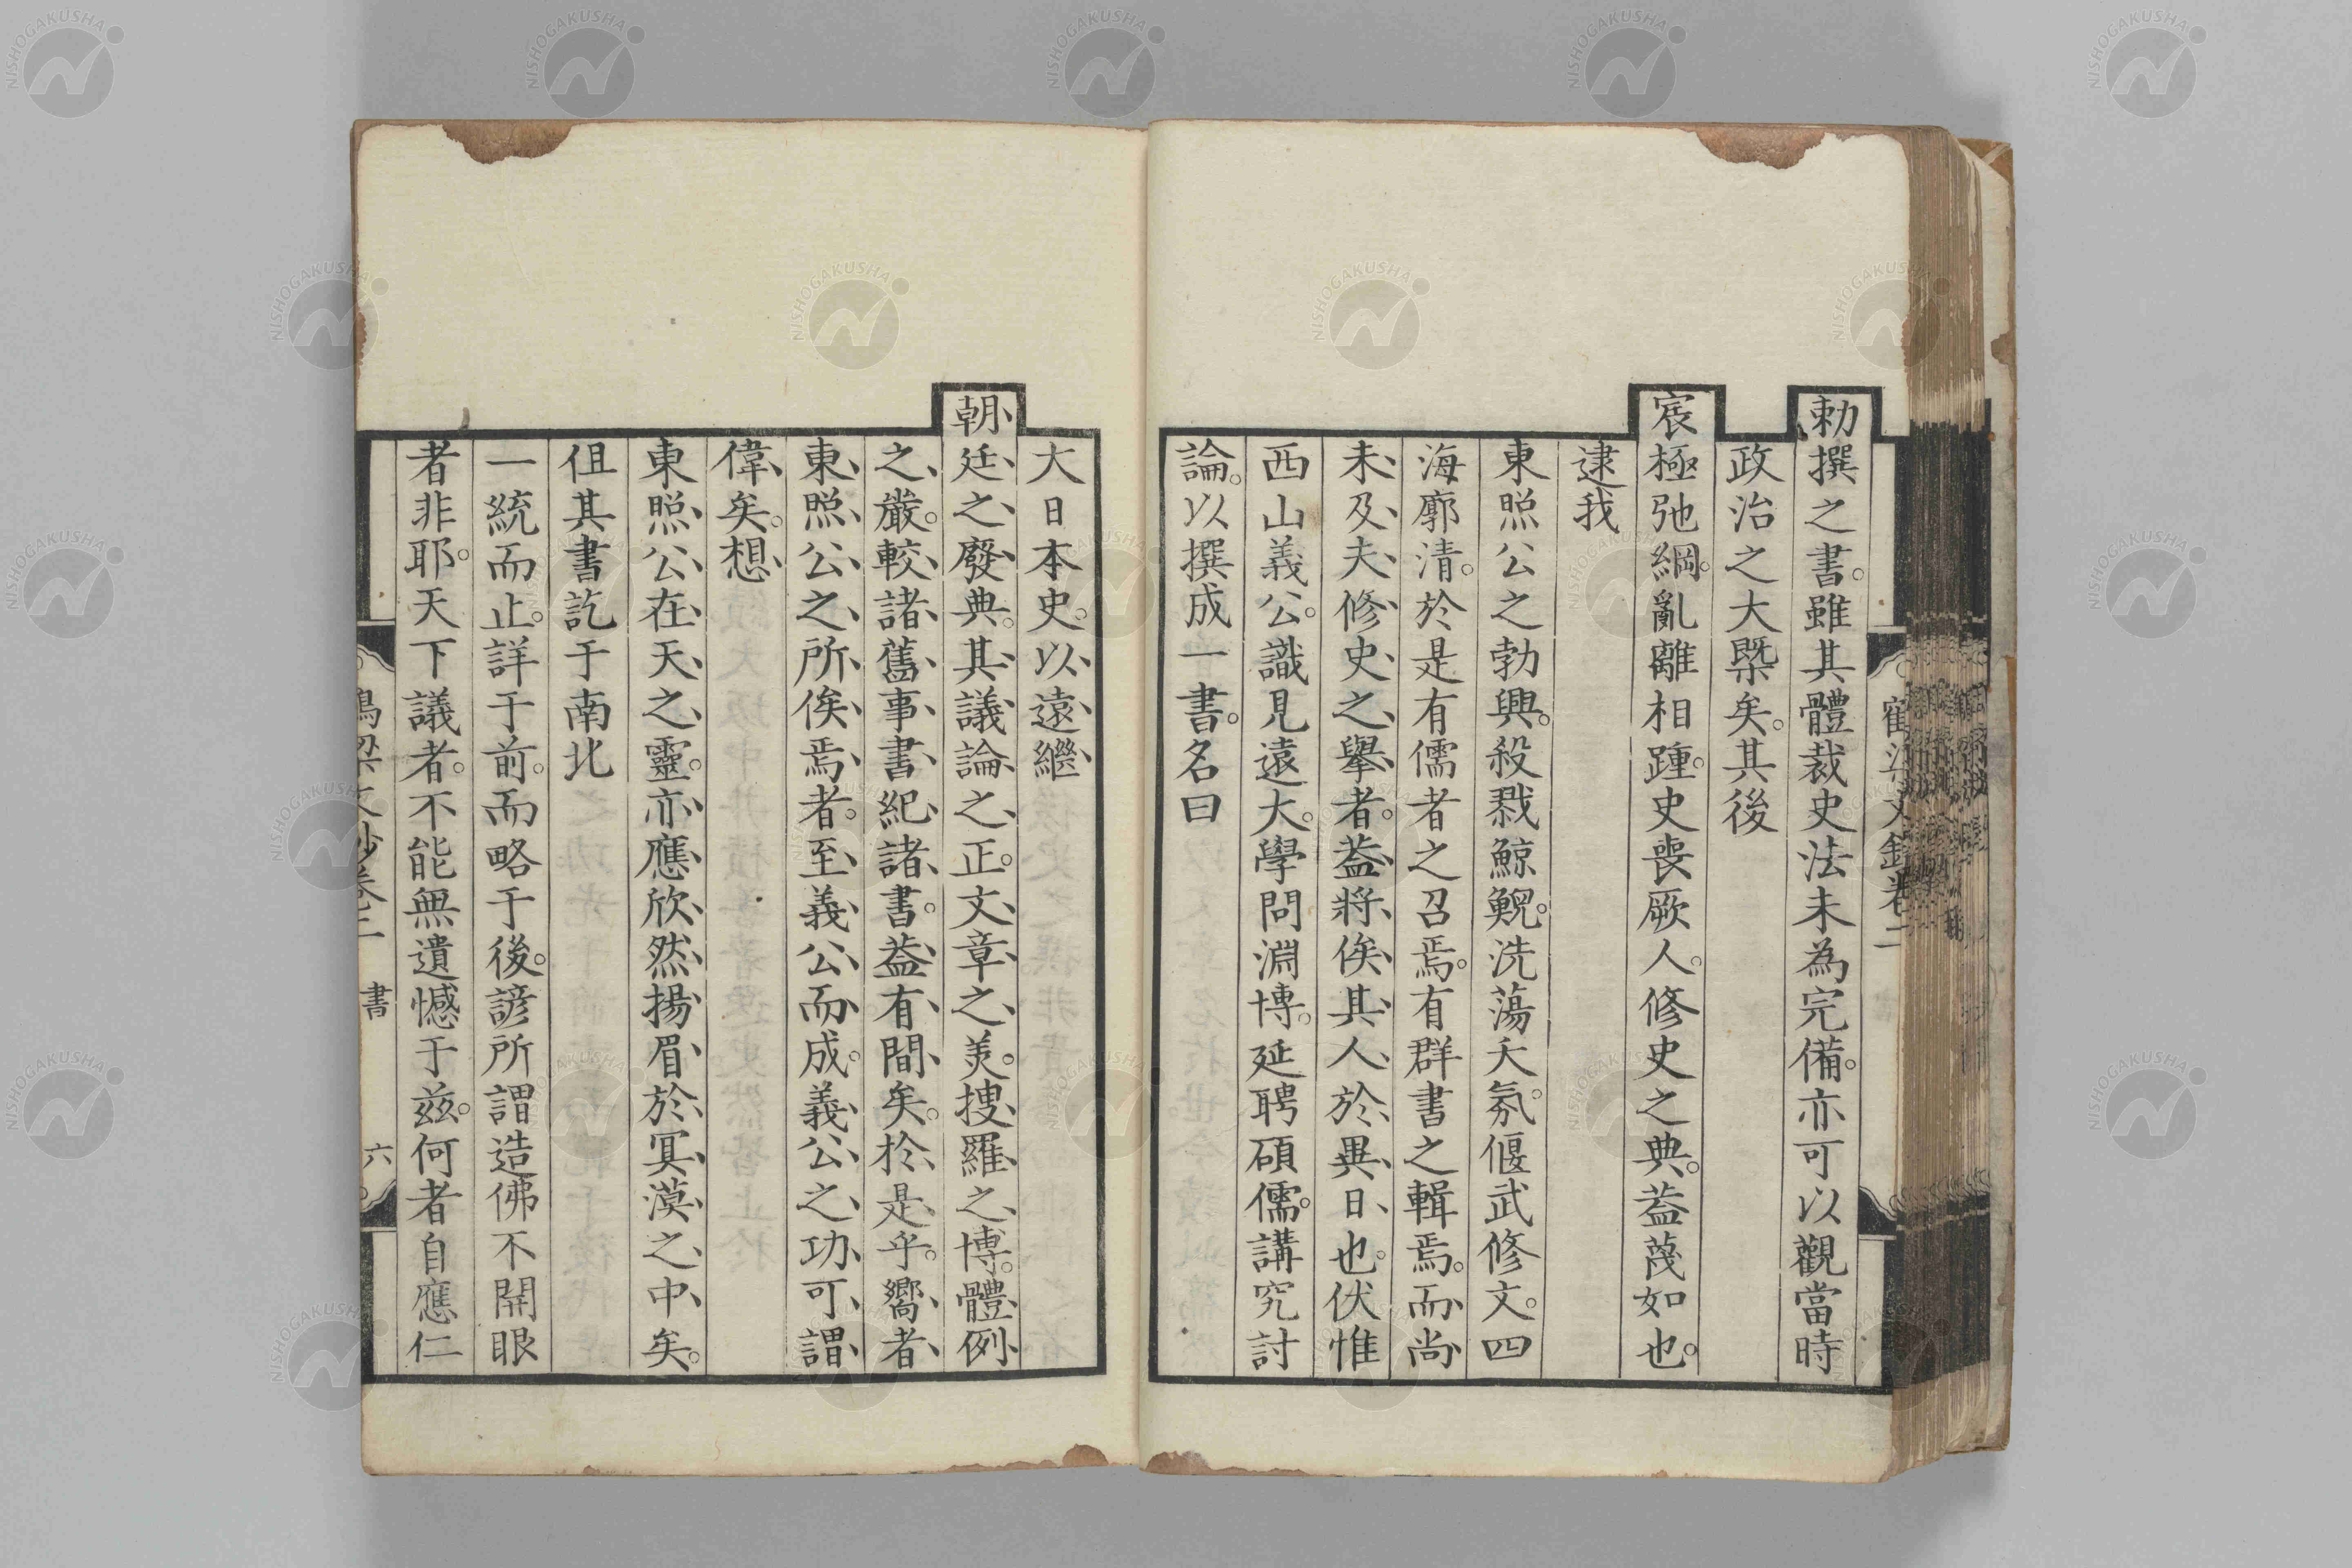 勅撰之書。雖其體裁史法未為完備。亦可以觀當時
政治之大槩矣。其後
宸極弛綱。亂離相踵。史喪厥人。修史之典。葢蔑如也。
逮我
東照公之勃興。殺戮鯨鯢。洗蕩夭氛。偃武修文。四
海廓清。於是有儒者之召焉。有群書之輯焉。而尚
未及夫修史之擧者。葢將俟其人於異日也。伏惟
西山義公。識見遠大。學問淵博。延聘碩儒。講究討
論。以撰成一書。名曰
大日本史。以遠繼
朝廷之廢典。其議論之正。文章之美。搜羅之博。體例
之嚴。較諸舊事書紀諸書。葢有間矣。於是乎。嚮者
東照公之所俟焉者。至義公而成。義公之功可謂
偉矣。想
東照公在天之靈。亦應欣然揚眉於冥漠之中矣。
但其書訖于南北
一統而止。詳于前。而略于後。諺所謂造佛不開眼
者非耶。天下議者。不能無遺憾于茲。何者自應仁
書 六